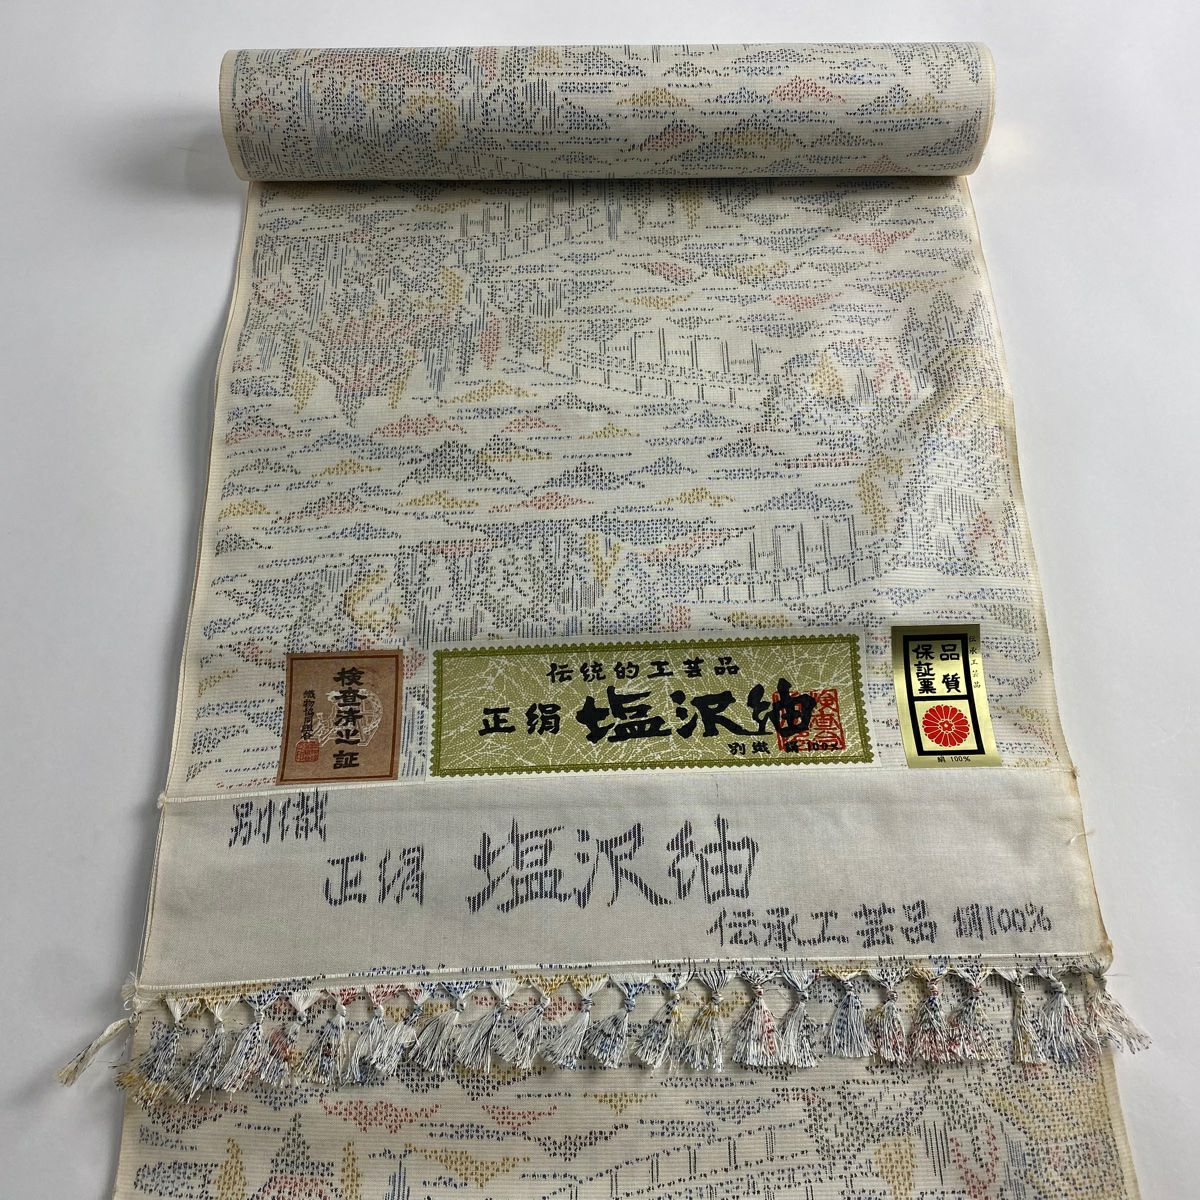 検査済之証
伝統的工芸品
正絹 塩沢紬
別織 絹100%
品質
保証票
伝承工芸品
絹 100%
別織
正絹 塩沢紬
伝承工芸品 絹100%